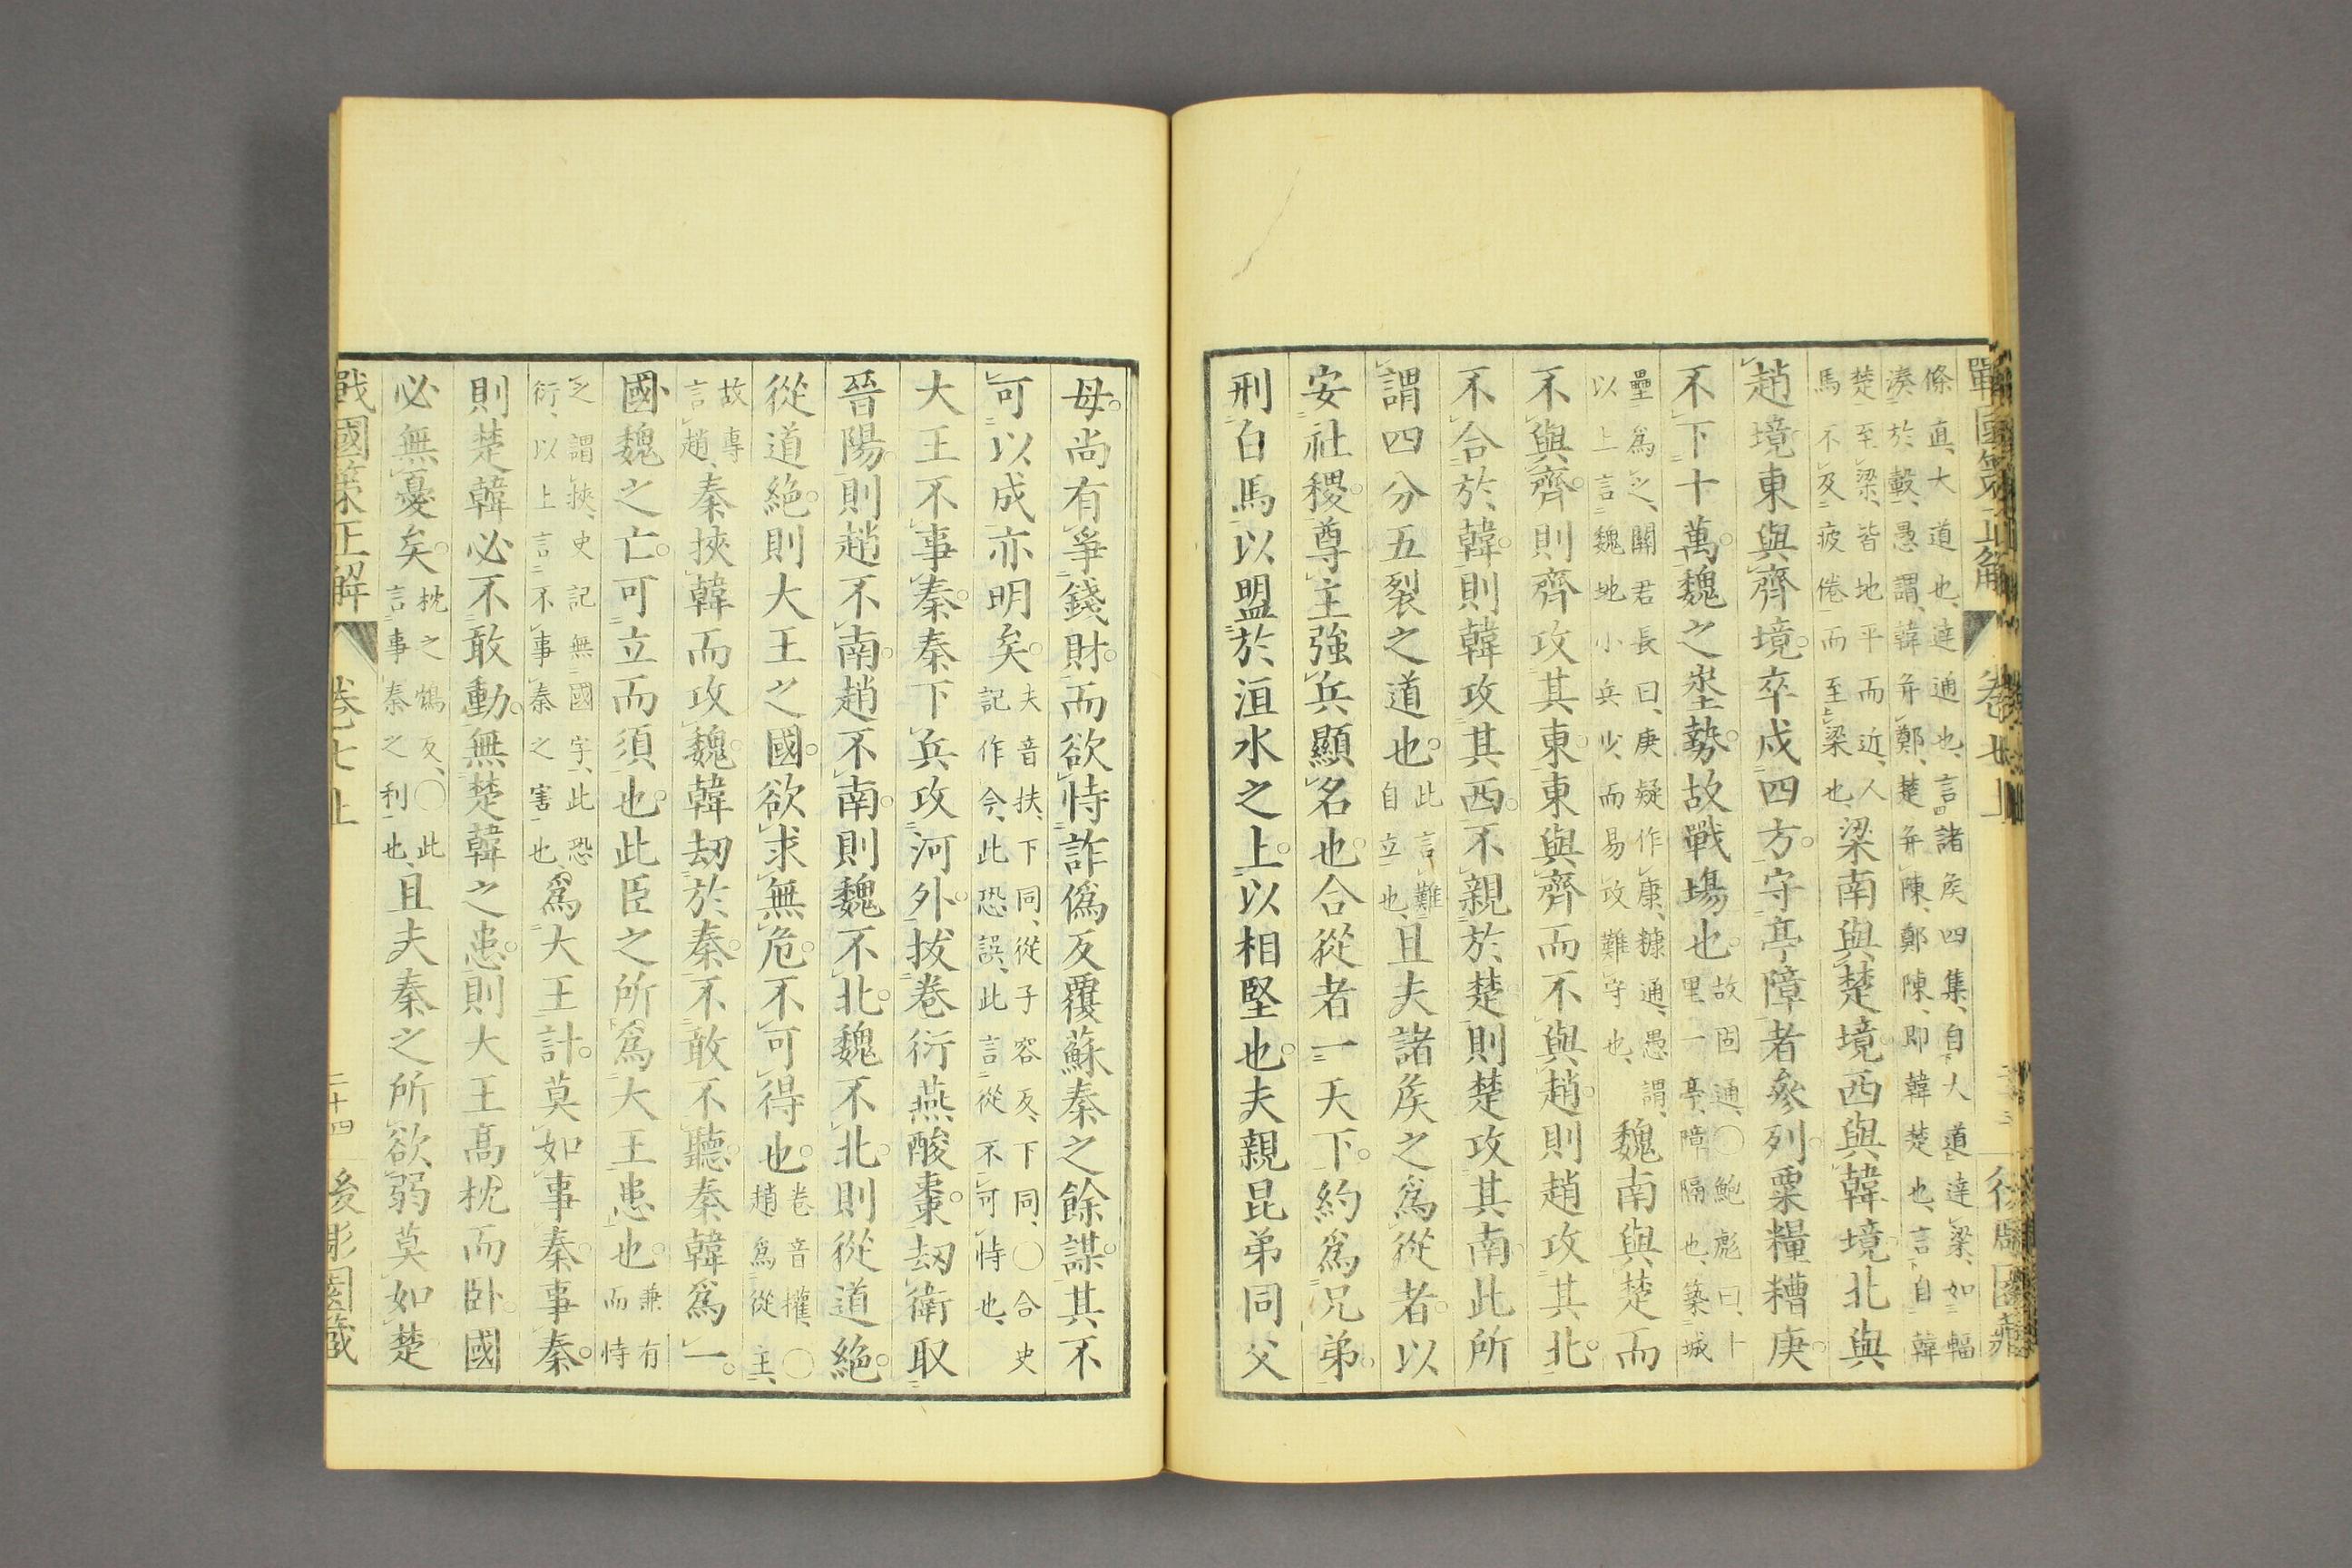 戰國策正解 卷七上 二十三
條直、大道也、達通也、言諸矦四集、自大道達梁、如輻
湊於轂、愚謂、韓并鄭、楚并陳、鄭陳、即韓楚也、言自韓
楚至梁、皆地平而近、人馬不及疲倦而至梁也、梁南與楚境。西與韓境。北與
趙境東與齊境。卒戍四方。守亭障者參列。粟糧糟庚。
不下十萬。魏之埊勢。故戰塲也。故固通、〇鮑彪曰、十里一亭、障隔也、築城
壘爲之、關君長曰、庚疑作康、糠通、愚謂、以上言魏地小兵少、而易攻難守也、魏南與楚而
不與齊。則齊攻其東。東與齊而不與趙。則趙攻其北。
不合於韓。則韓攻其西。不親於楚。則楚攻其南。此所
謂四分五裂之道也。此言難自立也、且夫諸矦之爲從者。以
安社稷。尊主強兵顯名也。合從者一天下。約爲兄弟。
刑白馬以盟於洹水之上。以相堅也。夫親昆弟同父
母。尚有爭錢財。而欲恃詐僞反覆蘇秦之餘謀。其不
可以成亦明矣。夫音扶、下同、從子容反、下同、〇合史記作令、此恐誤、此言從不可恃也、
大王不事秦。秦下兵攻河外。拔卷衍燕酸棗。劫衛取
晉陽。則趙不南。趙不南。則魏不北。魏不北。則從道絕。
從道絕。則大王之國。欲求無危。不可得也。卷音權、〇趙爲從主、
故專言趙、秦挾韓而攻魏。韓劫於秦。不敢不聽。秦韓爲一。
國。魏之亡。可立而須也。此臣之所爲大王患也。兼有而恃
之謂挾、史記無國字、此恐衍、以上言不事秦之害也、爲大王計。莫如事秦。事秦。
則楚韓必不敢動。無楚韓之患。則大王高枕而卧。國
必無憂矣。枕之鴆反、〇此言事秦之利也、且夫秦之所欲弱莫如楚
戰國策正解 卷七上 二十四 後彫園藏